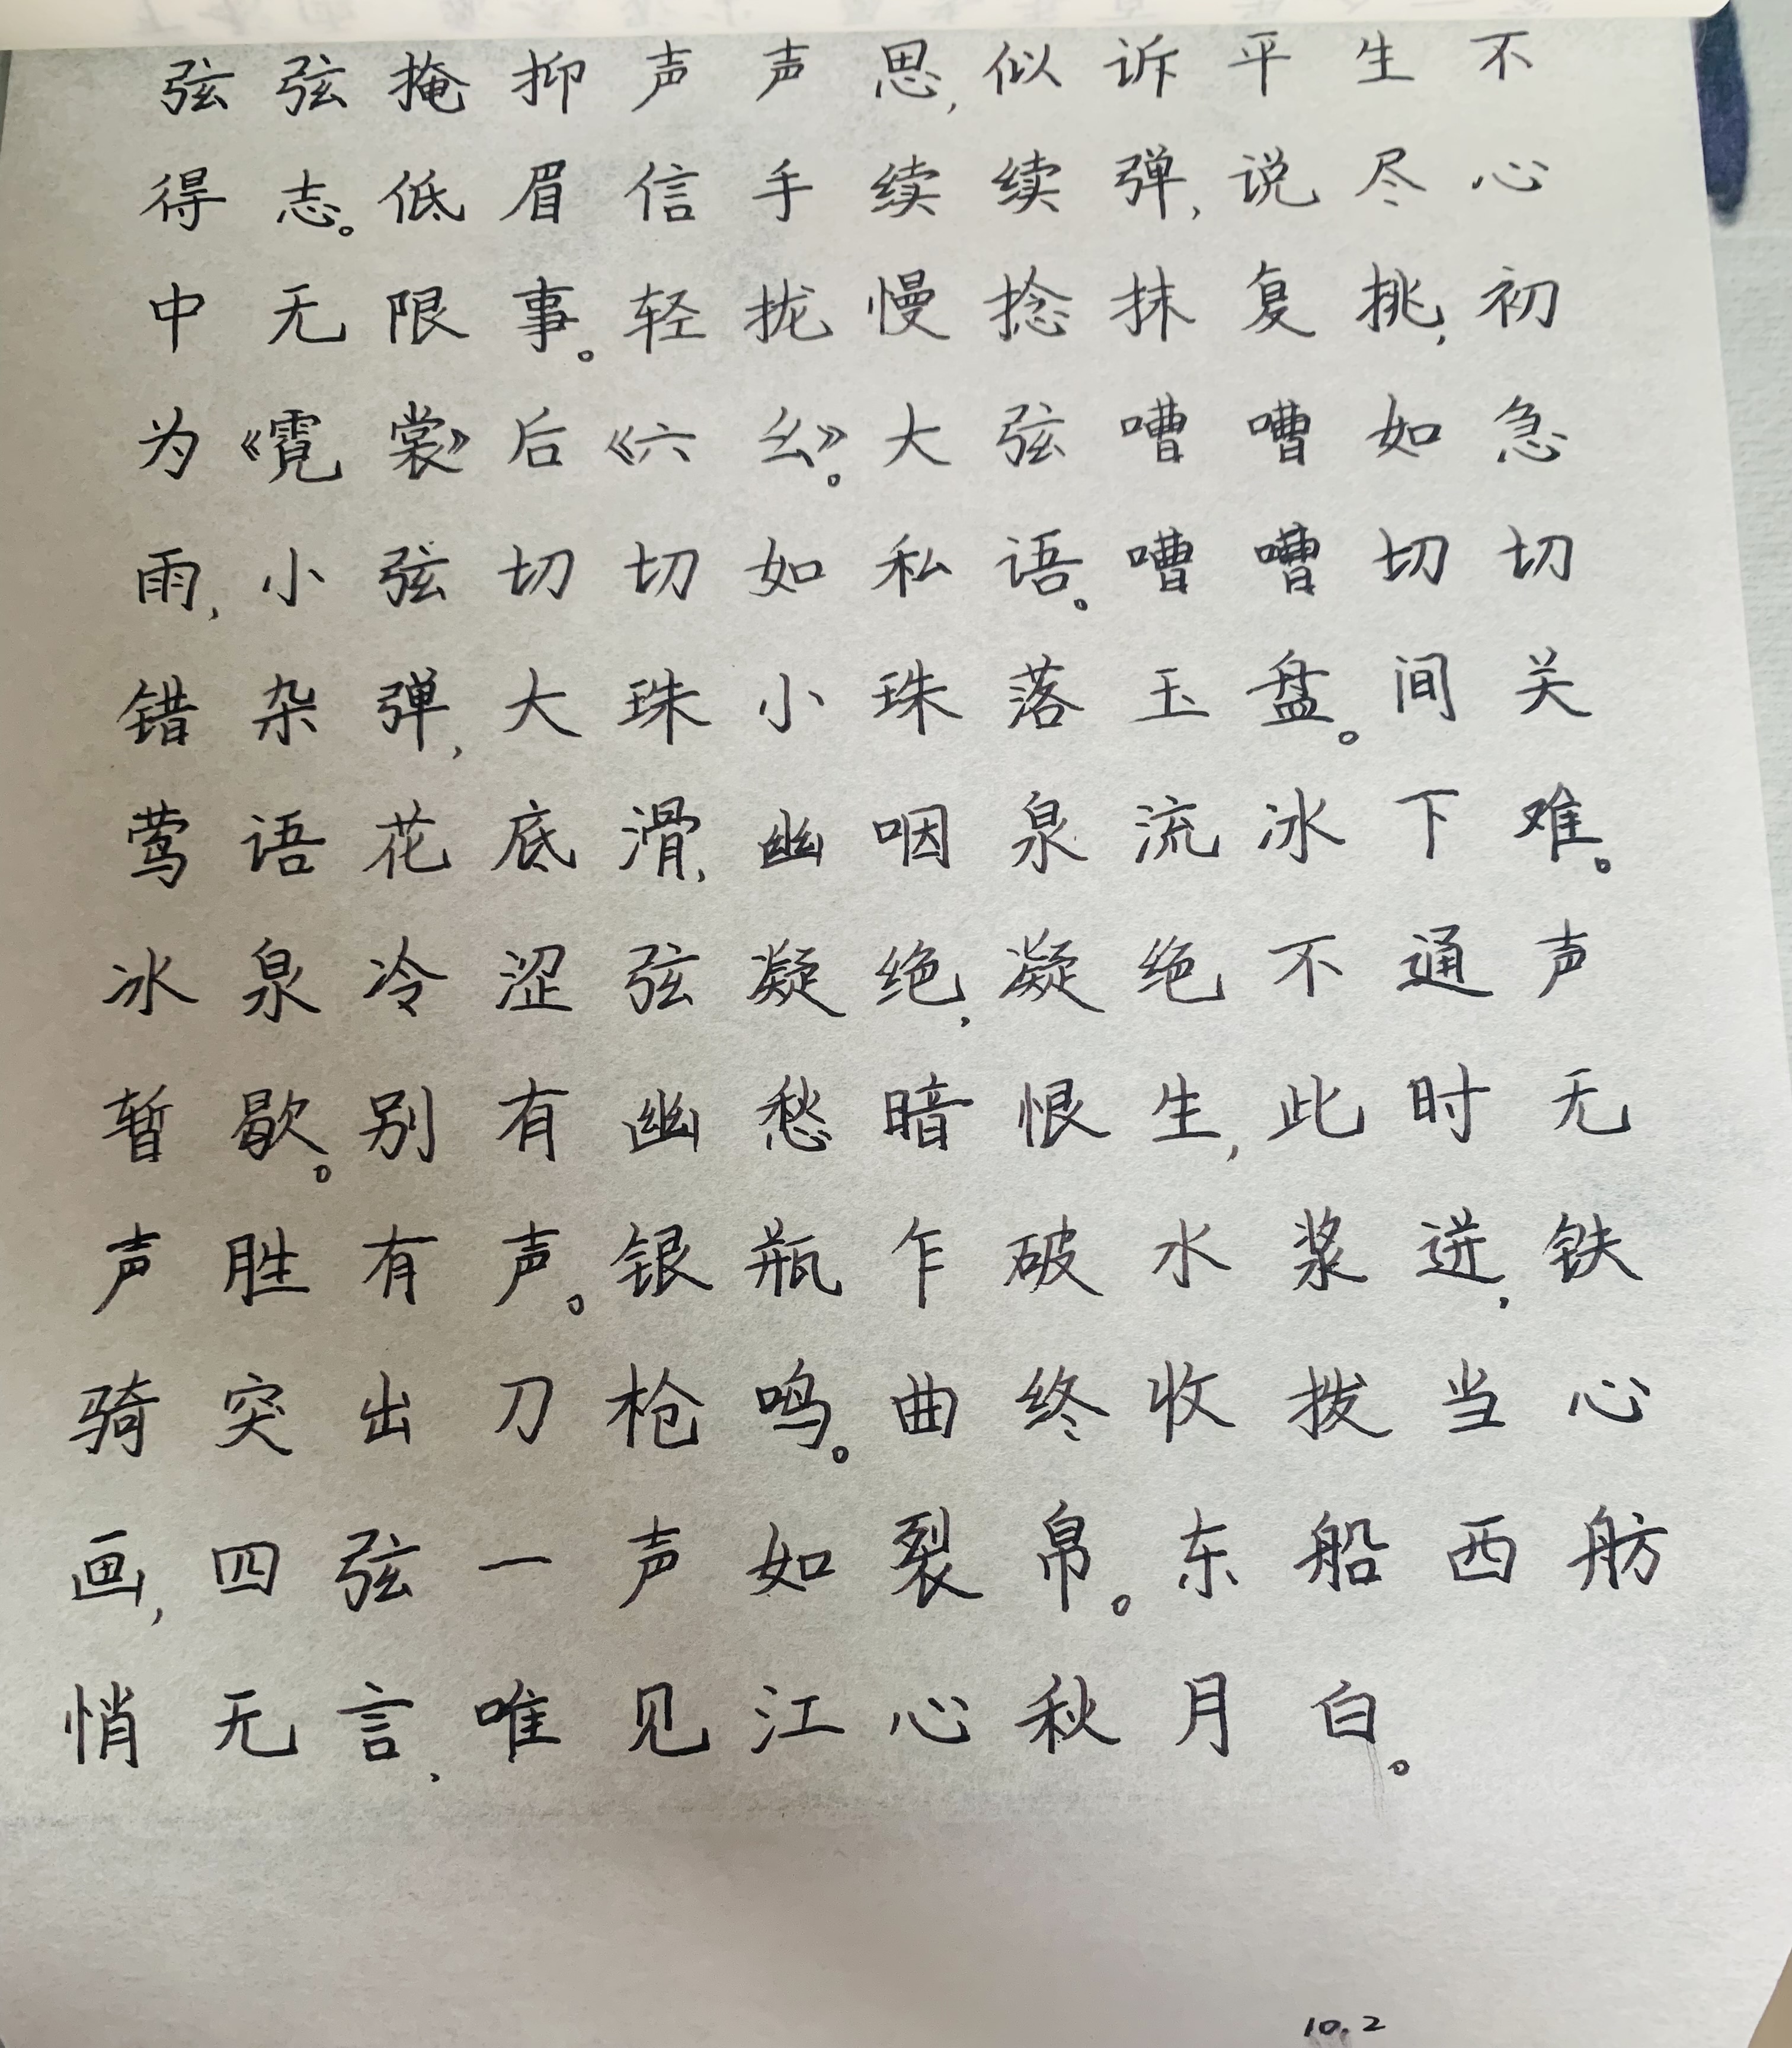 弦弦掩抑声声思,似诉平生不
得志。低眉信手续续弹,说尽心
中无限事。轻拢慢捻抹复挑,初
为《霓裳》后《六幺》。大弦嘈嘈如急
雨,小弦切切如私语。嘈嘈切切
错杂弹,大珠小珠落玉盘。间关
莺语花底滑,幽咽泉流冰下难。
冰泉冷涩弦凝绝,凝绝不通声
暂歇。别有幽愁暗恨生,此时无
声胜有声。银瓶乍破水浆迸,铁
骑突出刀枪鸣。曲终收拨当心
画,四弦一声如裂帛。东船西舫
悄无言,唯见江心秋月白。
10.2